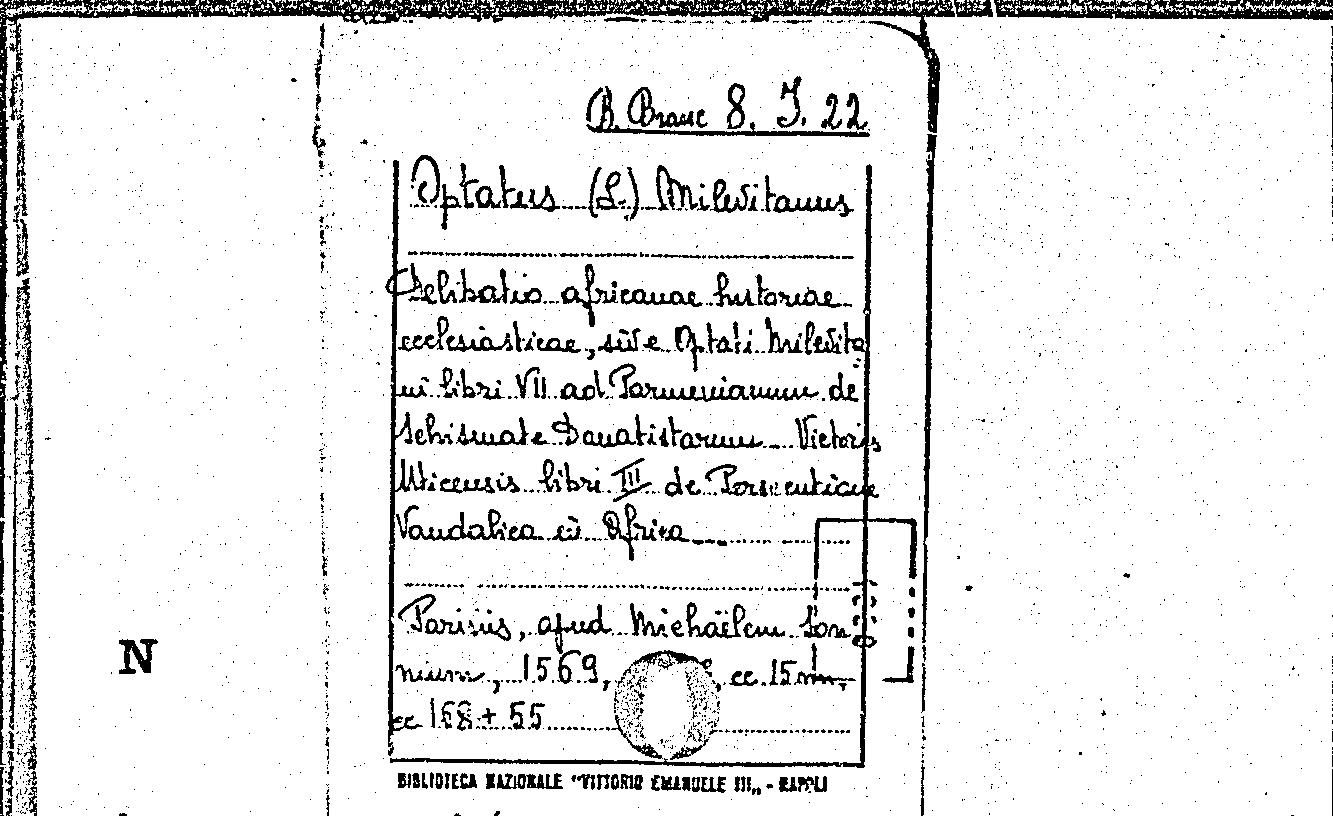 B. Branc 8. J. 22
Optatus (S.) Milevitanus
Delibatio africanae historiae
ecclesiasticae, sive Optati Milevita
ni libri VII ad Parmenianum de
Schismate Donatistarum Victoris
Uticensis libri III de Persecutione
Vandalica in Africa
Parisiis, apud Michaëlem Son
nium, 1569, cc. 15 nn,
cc 168 + 55
BIBLIOTECA NAZIONALE "VITTORIO EMANUELE III„ - NAPOLI
N